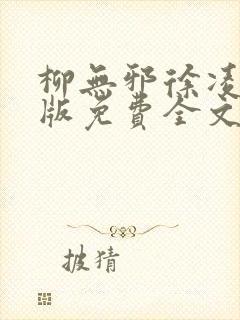 柳無邪徐凌
版免費全文
披猜